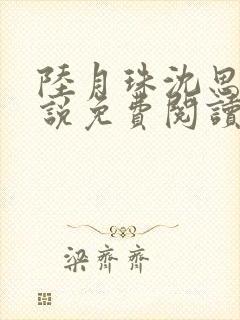 陸月珠沈思
說免費閱讀
梁齊齊